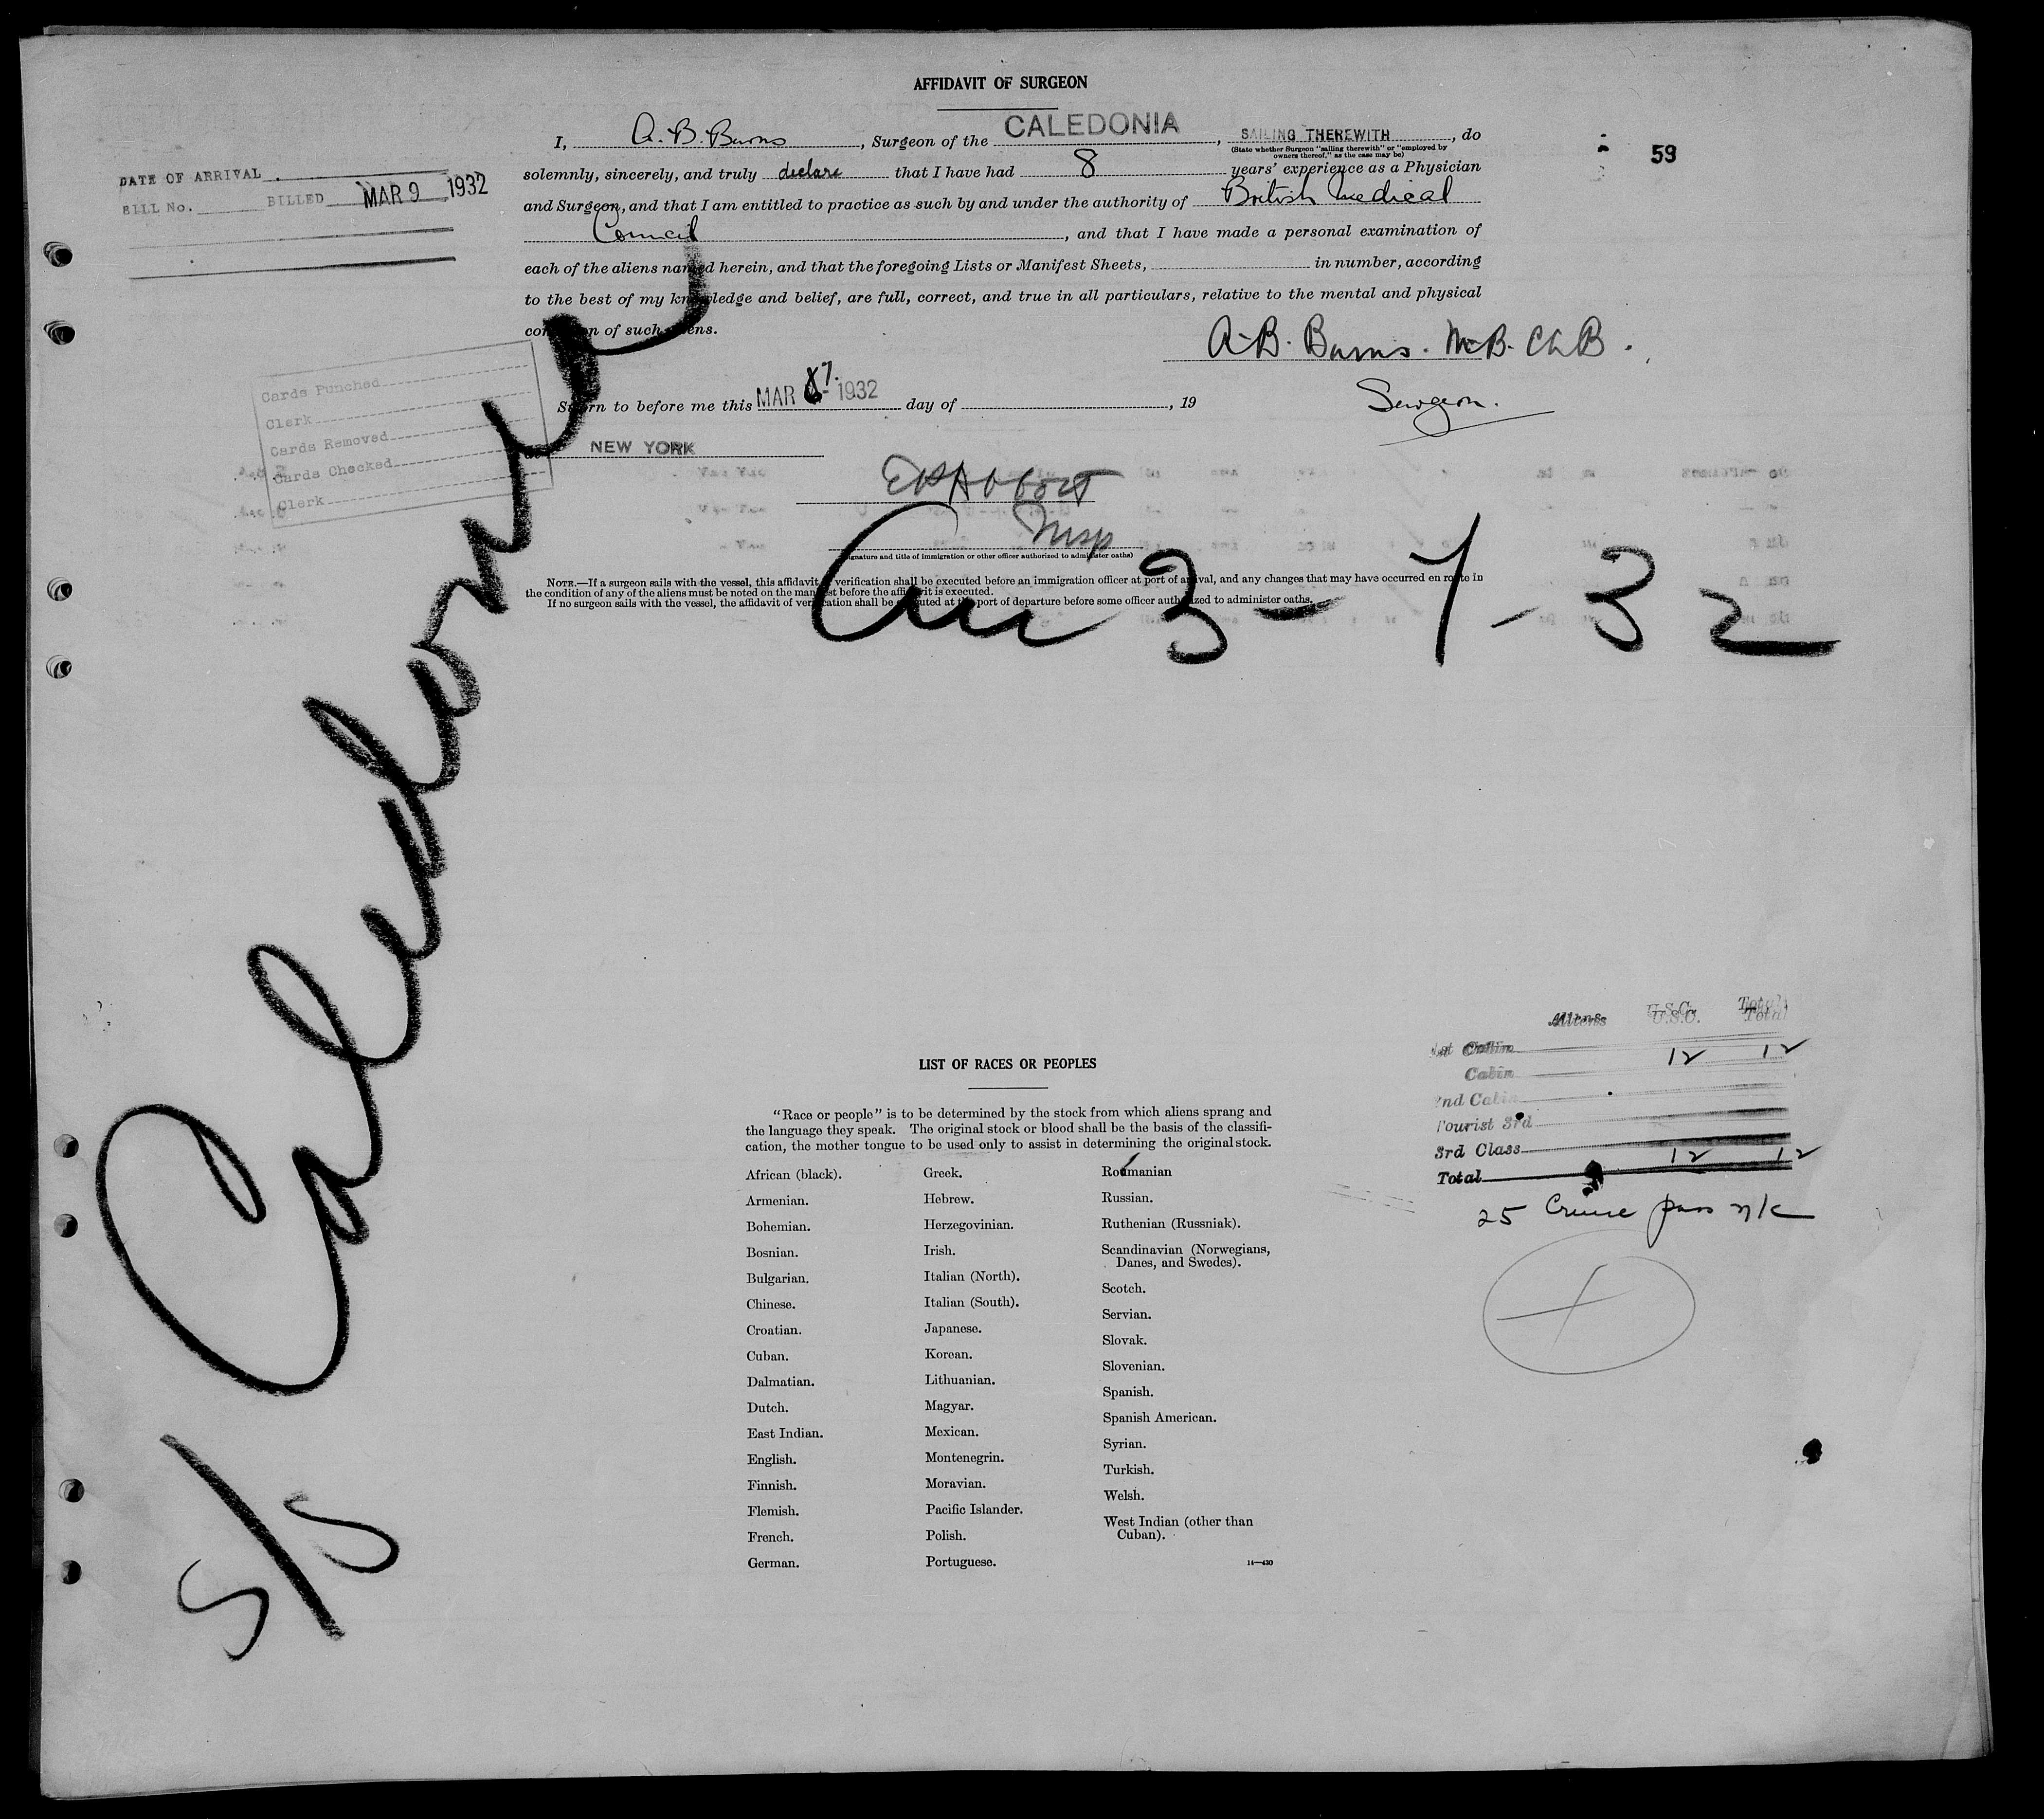 AFFIDAVIT OF SURGEON
I, A. B. Burns, Surgeon of the CALEDONIA, SAILING THEREWITH, do
(State whether Surgeon "sailing therewith" or "employed by
owners thereof," as the case may be)
59
solemnly, sincerely, and truly declare that I have had 8 years' experience as a Physician
and Surgeon, and that I am entitled to practice as such by and under the authority of British Medical
Council, and that I have made a personal examination of
each of the aliens named herein, and that the foregoing Lists or Manifest Sheets, in number, according
to the best of my knowledge and belief, are full, correct, and true in all particulars, relative to the mental and physical
condition of such aliens.
DATE OF ARRIVAL
BILL No. BILLED MAR 9 1932
A. B. Burns. M.B. Ch.B.
Surgeon.
Cards Punched
Clerk
Cards Removed
Cards Checked
Clerk
Sworn to before me this MAR 7. 1932 day of , 19
NEW YORK
Insp
(Signature and title of immigration or other officer authorized to administer oaths)
NOTE.—If a surgeon sails with the vessel, this affidavit of verification shall be executed before an immigration officer at port of arrival, and any changes that may have occurred en route in
the condition of any of the aliens must be noted on the manifest before the affidavit is executed.
If no surgeon sails with the vessel, the affidavit of verification shall be executed at the port of departure before some officer authorized to administer oaths.
Arr 3-7-32
S/S Caledonia
Aliens U.S.C. Total
1st Cabin 12 12
Cabin
2nd Cabin
Tourist 3rd
3rd Class
Total 12 12
25 Cruise pass n/c
LIST OF RACES OR PEOPLES
"Race or people" is to be determined by the stock from which aliens sprang and
the language they speak. The original stock or blood shall be the basis of the classifi-
cation, the mother tongue to be used only to assist in determining the original stock.
African (black).
Armenian.
Bohemian.
Bosnian.
Bulgarian.
Chinese.
Croatian.
Cuban.
Dalmatian.
Dutch.
East Indian.
English.
Finnish.
Flemish.
French.
German.
Greek.
Hebrew.
Herzegovinian.
Irish.
Italian (North).
Italian (South).
Japanese.
Korean.
Lithuanian.
Magyar.
Mexican.
Montenegrin.
Moravian.
Pacific Islander.
Polish.
Portuguese.
Roumanian
Russian.
Ruthenian (Russniak).
Scandinavian (Norwegians,
Danes, and Swedes).
Scotch.
Servian.
Slovak.
Slovenian.
Spanish.
Spanish American.
Syrian.
Turkish.
Welsh.
West Indian (other than
Cuban).
14—430